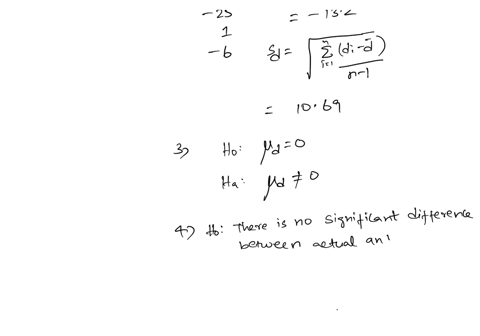 -25 = -13.2
1
-6 Sd = √(Σ(di-d̄)/n-1)
= 10.69
3) Ho: μd = 0
Ha: μd ≠ 0
4) Ho: There is no significant difference
between actual an